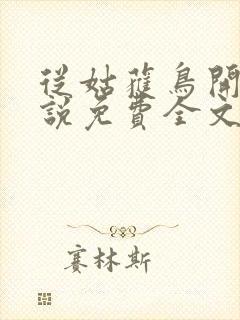 從姑蘿鳥開
說免費全文
賽林斯